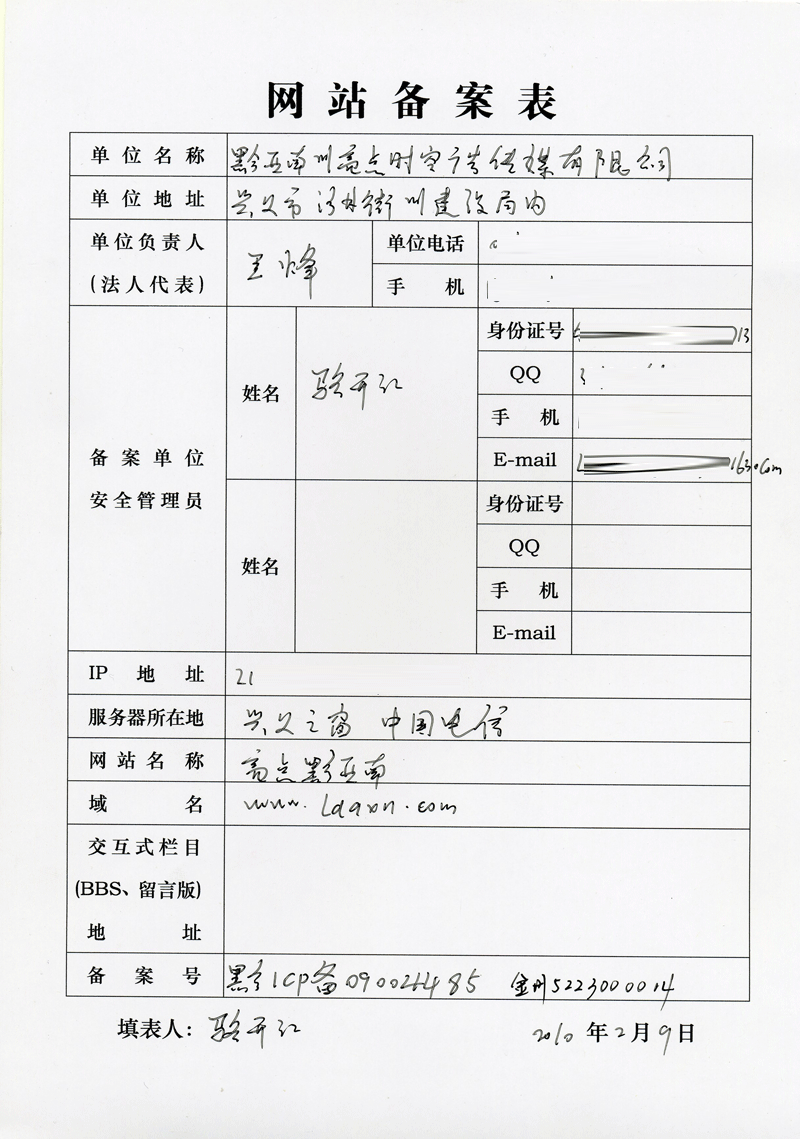 网站备案表
单位名称 黔西南州高点时空广告传媒有限公司
单位地址 兴义市 街州建设局内
单位负责人
(法人代表) 王峰
单位电话
手机
备案单位
安全管理员
姓名 骆开江
身份证号 13
QQ
手机
E-mail 163.com
姓名
身份证号
QQ
手机
E-mail
IP地址 21
服务器所在地 兴义之窗 中国电信
网站名称 高点黔西南
域名
交互式栏目
(BBS、留言版)
地址
备案号 黔ICP备 金州5223000014
填表人：骆开江 2010年2月9日